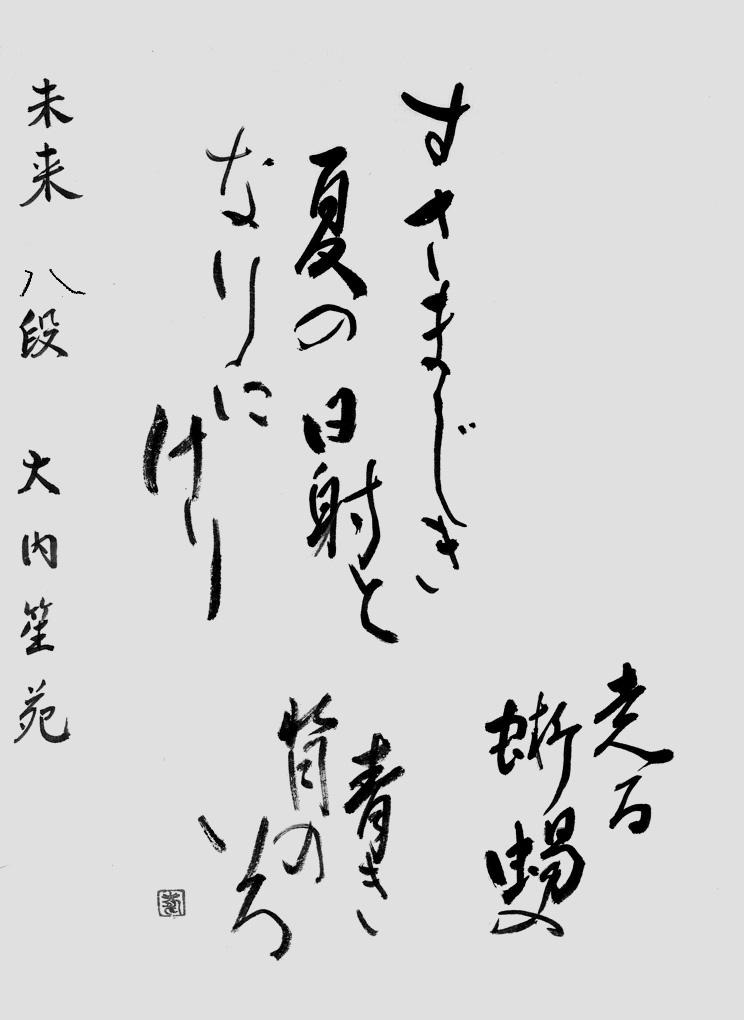 すさまじき
夏の日射と
なりに
けり
走る
蜥蜴の
青き
背の
いろ
未来 八段 大内笙苑